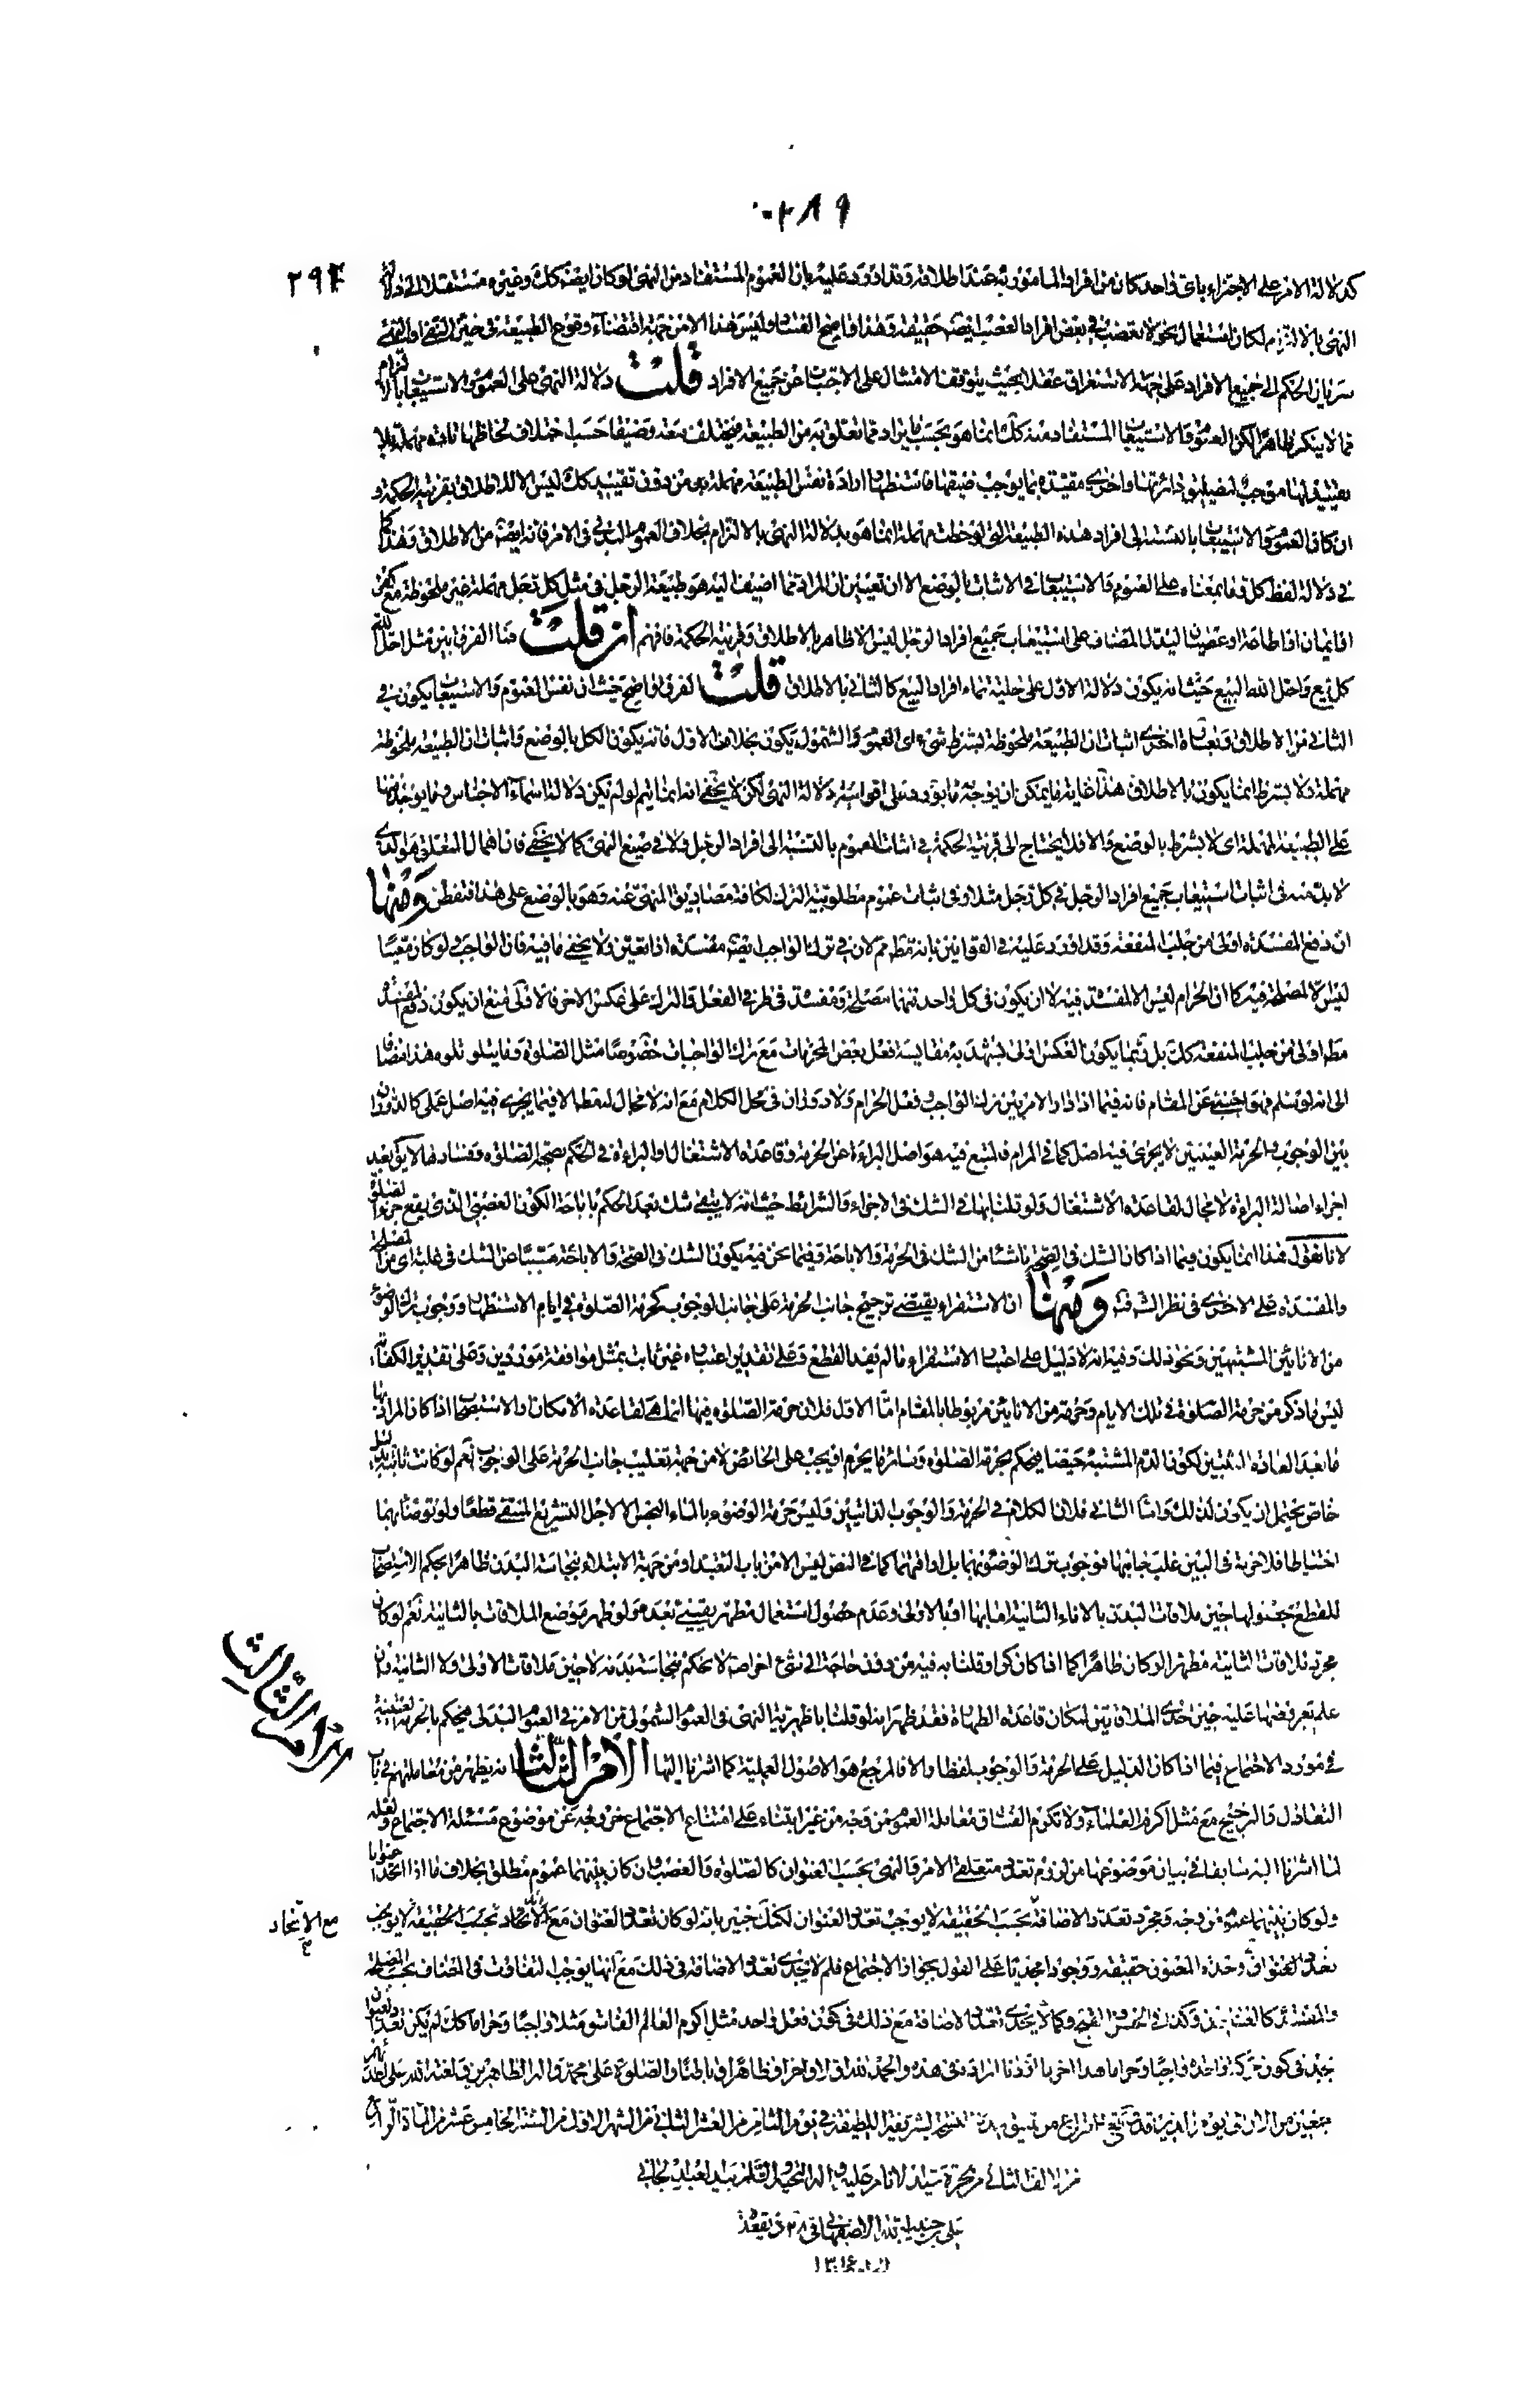 ٢٨٩
٢٩٤
كدلالة الامر على الاجتزاء باى واحد كان من افراد المامور به عند اطلاقه وقد اورد عليه بان العموم المستفاد من النهى لو كان ايضه كك وغيره مستقلا الى دلالة
النهى بالالتزام لكان استعمال نحو لا تغصب فى بعض افراد الغصب ايضه حقيقة وهذا واضح الفساد وليس هذا الا من جهة اقتضاء وقوع الطبيعة فى حيز النفى او النهى
سريان الحكم الى جميع الافراد على جهة الاستغراق عقلا بحيث يتوقف الامتثال على الاجتناب عن جميع الافراد قلت دلالة النهى على العموم والاستيعاب بالالتزام
مما لا ينكر ظاهرا لكن العموم والاستيعاب المستفاد منه كك انما هو بحسب ما يراد مما تعلق به من الطبيعة فيختلف سعة وضيقا حسب اختلاف لحاظها تارة مهملة بلا
تقييد لها موجب لتضييق دائرتها واخرى مقيدة بما يوجب ضيقها فاستظهار ارادة نفس الطبيعة مهملة من دون تقييد كك ليس الا للاطلاق بقرينة الحكمة و
ان كان العموم والاستيعاب بالنسبة الى افراد هذه الطبيعة التى لوحظت مهملة انما هو بدلالة النهى بالالتزام بخلاف العموم البدلى فى الامر فانه ايضه من الاطلاق وهذا كما
فى دلالة لفظ كل وما بمعناه على العموم والاستيعاب فى الاثبات بالوضع الا ان تعيين ان المراد مما اضيف اليه هو طبيعة الرجل فى مثل كل رجل مهملة غير ملحوظة مع كفر
او ايمان او اطاعة او عصيان ليدل المضاف على استيعاب جميع افراد الرجل ليس الا ظاهر بالاطلاق وقرينة الحكمة فافهم ان قلت فما الفرق بين مثل احل الله
كل بيع واحل الله البيع حيث انه يكون دلالة الاول على حلية تمام افراد البيع كالثانى بالاطلاق قلت الفرق واضح حيث ان نفس العموم والاستيعاب يكون فى
الثانى من الاطلاق وبعبارة اخرى اثبات ان الطبيعة ملحوظة بشرط شىء اى العموم والشمول يكون بخلاف الاول فانه يكون الكل بالوضع واثبات ان الطبيعة ملحوظة
مهملة ولا بشرط انما يكون بالاطلاق هذا غاية ما يمكن ان يوجه ما يورد على اقوائية دلالة النهى لكن لا يخفى انه انما يتم لو لم يكن دلالة اسماء الاجناس وما يوجد منها
على الطبيعة المهملة اى لا بشرط بالوضع والا فلا يحتاج الى قرينة الحكمة فى اثبات العموم بالنسبة الى افراد الرجل ولا فى صيغ النهى كما لا يخفى فان اهمال المتعلق هو الذى
لا بد منه فى اثبات استيعاب جميع افراد الرجل فى كل رجل مثلا وفى اثبات عموم مطلوبية الترك لكافة مصاديق المنهى عنه وهو بالوضع على هذا فتفطن ومنها
ان دفع المفسدة اولى من جلب المنفعة وقد اورد عليه فى القوانين بانه مطم مم لان فى ترك الواجب ايضه مفسدة اذا تعين ولا يخفى ما فيه فان الواجب لو كان معينا
ليس الا لمصلحة فيه كما ان الحرام ليس الا لمفسدة فيه لا ان يكون فى كل واحد منهما مصلحة ومفسدة فى طرفى الفعل والترك على عكس الاخر فالاولى منع ان يكون دفع المفسدة
مطم اولى من جلب المنفعة كك بل ربما يكون العكس اولى يشهد به مقايسة فعل بعض المحرمات مع ترك الواجبات خصوصا مثل الصلوة وما يتلو تلوه هذا مضافا
الى انه لو سلم فهو اجنبى عن المقام فانه فيما اذا دار الامر بين ترك الواجب وفعل الحرام ولا دوران فى محل الكلام مع انه لا مجال له قطعا الا فيما يجرى فيه اصل عملى كالدوران
بين الوجوب والحرمة العينيين لا يجرى فيه اصل كما فى المرام فالمتبع فيه هو اصل البراءة عن الحرمة وقاعدة الاشتغال او البراءة فى الحكم بصحة الصلوة وفسادها لا يق بعد
اجراء اصالة البراءة لا مجال لقاعدة الاشتغال ولو قلنا بها فى الشك فى الاجزاء والشرايط حيث انه لا يبقى شك بعد الحكم باباحة الكون الغصبى الذى يقع جزء الصلوة
لانا نقول هذا انما يكون فيما اذا كان الشك فى الصحة ناشئا من الشك فى الحرمة والاباحة وفيما نحن فيه يكون الشك فى الصحة والاباحة مسببا عن الشك فى غلبة اى من المصلحة
والمفسدة على الاخرى فى نظر الشرع ومنها ان الاستقراء يقتضى ترجيح جانب الحرمة على جانب الوجوب كحرمة الصلوة فى ايام الاستظهار ووجوب ترك الوضوء
من الانائين المشتبهين ونحو ذلك وفيه انه لا دليل على اعتبار الاستقراء ما لم يفد القطع وعلى تقدير اعتباره غير ثابت بمثل موافقة موردين وعلى تقدير الكفاية
ليس ما ذكر من حرمة الصلوة فى تلك الايام وحرمة من الانائين مربوطا بالمقام اما الاول فلان حرمة الصلوة فيها انما هى لقاعدة الامكان والاستصحاب اذا كان المراد بها
ما بعد العادة المثبتين لكون الدم المشتبه حيضا فيحكم بحرمة الصلوة وسائر ما يحرم او يجب على الحائض لا من جهة تغليب جانب الحرمة على الوجوب نعم لو كانت ثابتة بدليل
خاص يحتمل ان يكون لذلك واما الثانى فلان الكلام فى الحرمة والوجوب لذاتيين وليس حرمة الوضوء بالماء النجس الا لاجل التشريع المنتفى قطعا ولو توضأ بهما
احتياطا فلا حرمة فى البين غلب جانبها فوجوب ترك الوضوء منهما بل اراقتهما كما فى النص ليس الا من باب التعبد او من جهة الابتلاء بنجاسة البدن ظاهرا بحكم الاستصحاب
للقطع بحصولها حين ملاقات البدن بالاناء الثانية اما بها او بالاولى وعدم حصول استعمال مطهر يقينى بعده ولو طهر موضع الملاقات بالثانية نعم لو كان
مجرد ملاقات الثانية مطهرا لو كان طاهرا كما اذا كان كرا وقلنا به فيه من دون حاجة الى شىء اخر اصلا لا يحكم بنجاسة بدنه لا حين ملاقات الاولى ولا الثانية وان
علم بعروضها عليه حين احدى الملاقاتين لمكان قاعدة الطهارة فقد ظهر انه لو قلنا باظهرية النهى فى العموم الشمولى من الامر فى العموم البدلى فيحكم بالحرمة الفعلية
فى مورد الاجتماع فيما اذا كان الدليل على الحرمة والوجوب لفظا والا فالمرجع هو الاصول العملية كما اشرنا اليها الامر الثالث انه يظهر من معاملتهم فى باب
الامر الثالث
التعادل والترجيح مع مثل اكرم العلماء ولا تكرم الفساق معاملة العموم من وجه من غير ابتناء على امتناع الاجتماع خروجه عن موضوع مسئلة الاجتماع ولعله
لما اشرنا اليه سابقا فى بيان موضوعها من لزوم تعدد متعلقى الامر والنهى بحسب العنوان كالصلوة والغصب وان كان بينهما عموم مطلق بخلاف ما اذا اتحدا عنوانا
ولو كان بينهما عموم من وجه ومجرد تعدد الاضافة بحسب الحقيقة لا يوجب تعدد العنوان لكنك خبير بانه لو كان تعدد العنوان مع الاتحاد بحسب الحقيقة لا يوجب
مع الاتحاد
تعدد المعنون وحدة المعنون حقيقة ووجودا مجديا على القول بجواز الاجتماع فلم لا يجدى تعدد الاضافة فى ذلك مع انها يوجب التفاوت فى المضاف بحسب المصلحة
والمفسدة كالعنوانين وكذا فى الحسن والقبح وكما لا يجدى تعدد الاضافة مع ذلك فى كون فعل واحد مثل اكرم العالم الفاسق مثلا واجبا وحراما كك لم يكن تعدد العنوان
يجدى فى كون حركة واحدة واجبا وحراما هذا اخر ما اردنا ايراده فى هذه والحمد لله اولا واخرا وظاهرا وباطنا والصلوة على محمد واله الطاهرين ولعنة الله على اعدائهم
اجمعين من الان الى يوم الدين قد الفراغ من هذه النسخة الشريفة اللطيفة فى يوم الثامن من العشر الثانى من الشهر الاول من السنة الخامس عشر من المائة الرابع
من الالف الثانى من هجرة سيد الانام عليه واله التحية والسلام بيد العبد الجانى
على بن حبيب الله الاصفهانى فى ٢٨ ذيقعدة
١٣١٤